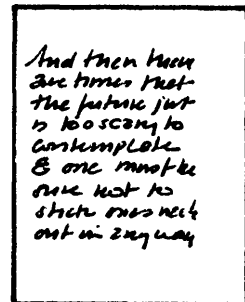 And then there
are times that
the future just
is too scary to
contemplate
& one must be
sure not to
stick ones neck
out in any way